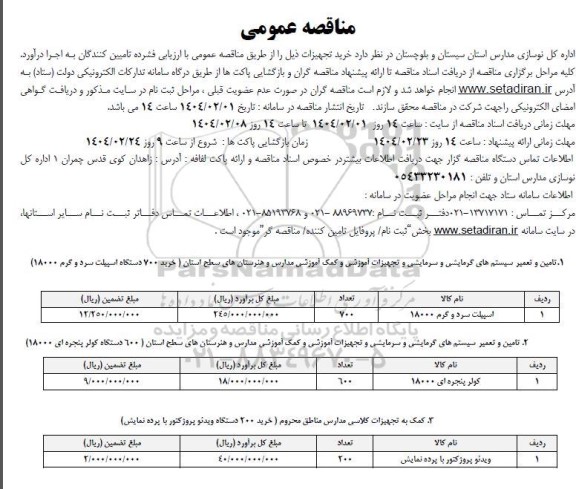 مناقصه عمومی
اداره کل نوسازی مدارس استان سیستان و بلوچستان در نظر دارد خرید تجهیزات ذیل را از طریق مناقصه عمومی با ارزیابی فشرده تامیین کنندگان به اجرا درآورد.
کلیه مراحل برگزاری مناقصه از دریافت اسناد مناقصه تا ارائه پیشنهاد مناقصه گران و بازگشایی پاکت ها از طریق درگاه سامانه تدارکات الکترونیکی دولت (ستاد) به
آدرس www.setadiran.ir انجام خواهد شد و لازم است مناقصه گران در صورت عدم عضویت قبلی ، مراحل ثبت نام در سایت مذکور و دریافت گواهی
امضای الکترونیکی راجهت شرکت در مناقصه محقق سازند. تاریخ انتشار مناقصه در سامانه : تاریخ ۱۴۰۴/۰۲/۰۱ ساعت ۱۴ می باشد.
مهلت زمانی دریافت اسناد مناقصه از سایت : ساعت ۱۴ روز ۱۴۰۴/۰۲/۰۱ تا ساعت ۱۴ روز ۱۴۰۴/۰۲/۰۸
مهلت زمانی ارائه پیشنهاد : ساعت ۱۴ روز ۱۴۰۴/۰۲/۲۳ زمان بازگشایی پاکت ها : شروع از ساعت ۹ روز ۱۴۰۴/۰۲/۲۴
اطلاعات تماس دستگاه مناقصه گزار جهت دریافت اطلاعات بیشتردر خصوص اسناد مناقصه و ارائه پاکت لفافه : آدرس : زاهدان کوی قدس چمران ۱ اداره کل
نوسازی مدارس استان و تلفن : ۰۵۴۳۳۲۳۰۱۸۱
اطلاعات سامانه ستاد جهت انجام مراحل عضویت در سامانه :
مرکز تماس : ۱۳۷۱۷۱۷۱-۰۲۱دفتر ثبت نام :۸۸۹۶۹۷۳۷ -۰۲۱ و ۸۵۱۹۳۷۶۸-۰۲۱ ، اطلاعات تماس دفاتر ثبت نام سایر استانها،
در سایت سامانه www.setadiran.ir بخش"ثبت نام/ پروفایل تامین کننده/ مناقصه گر"موجود است .
۱.تامین و تعمیر سیستم های گرمایشی و سرمایشی و تجهیزات آموزشی و کمک آموزشی مدارس و هنرستان های سطح استان ( خرید ۷۰۰ دستگاه اسپیلت سرد و گرم ۱۸۰۰۰)
ParsNamadData
ردیف نام کالا تعداد مبلغ کل برآورد (ریال) مبلغ تضمین (ریال)
۱ اسپیلت سرد و گرم ۱۸۰۰۰ ۷۰۰ ۲۴۵/۰۰۰/۰۰۰/۰۰۰ ۱۲/۲۵۰/۰۰۰/۰۰۰
پایگاه اطلاع رسانی مناقصه و مزایده
۲. تامین و تعمیر سیستم های گرمایشی و سرمایشی و تجهیزات آموزشی و کمک آموزشی مدارس و هنرستان های سطح استان ( ۶۰۰ دستگاه کولر پنجره ای ۱۸۰۰۰)
۰۲۱-۸۸۳۴۹۶۷۰-۵
ردیف نام کالا تعداد مبلغ کل برآورد (ریال) مبلغ تضمین (ریال)
۱ کولر پنجره ای ۱۸۰۰۰ ۶۰۰ ۱۸/۰۰۰/۰۰۰/۰۰۰ ۹/۰۰۰/۰۰۰/۰۰۰
۳. کمک به تجهیزات کلاسی مدارس مناطق محروم ( خرید ۲۰۰ دستگاه ویدئو پروژکتور با پرده نمایش)
ردیف نام کالا تعداد مبلغ کل برآورد (ریال) مبلغ تضمین (ریال)
۱ ویدئو پروژکتور با پرده نمایش ۲۰۰ ۴۰/۰۰۰/۰۰۰/۰۰۰ ۲/۰۰۰/۰۰۰/۰۰۰